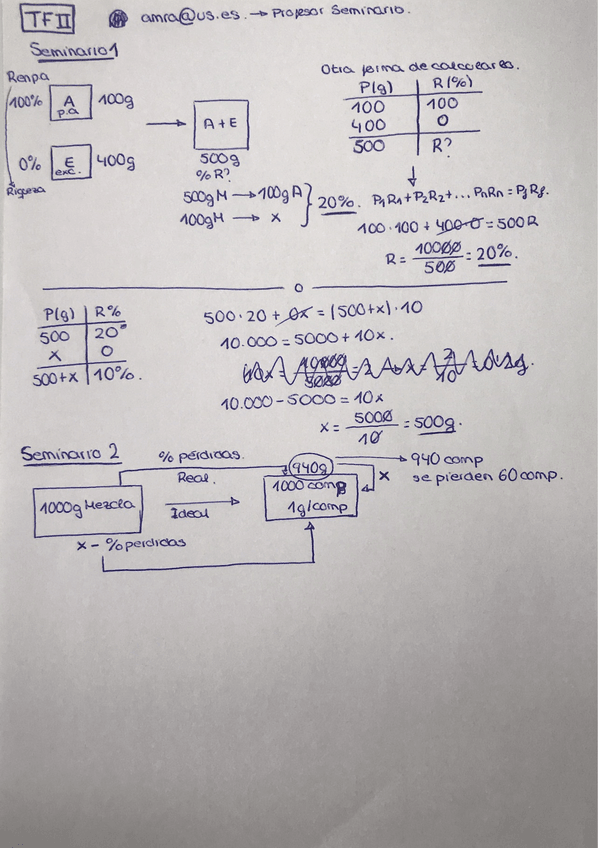 TFII amra@us.es. → Profesor Seminario.
Seminario 1
100% A p.a 100g
0% E exc. 400g
Riqueza
A + E
500g
% R?
500gM → 100gA
100gM → x
20%.
Otra forma de calcularlo.
P(g) R(%)
100 100
400 0
500 R?
P1R1 + P2R2 + ... PnRn = PfRf.
100·100 + 400·0 = 500R
R = 10000/500 = 20%.
P(g) R%
500 20
x 0
500+x 10%.
500·20 + 0x = (500+x)·10
10.000 = 5000 + 10x.
10.000 - 5000 = 10x
x = 5000/10 = 500g.
Seminario 2
% pérdidas.
Real.
Ideal
1000g Mezcla
940g → 940 comp
x se pierden 60 comp.
1000 comp
1g/comp
x - % perdidas